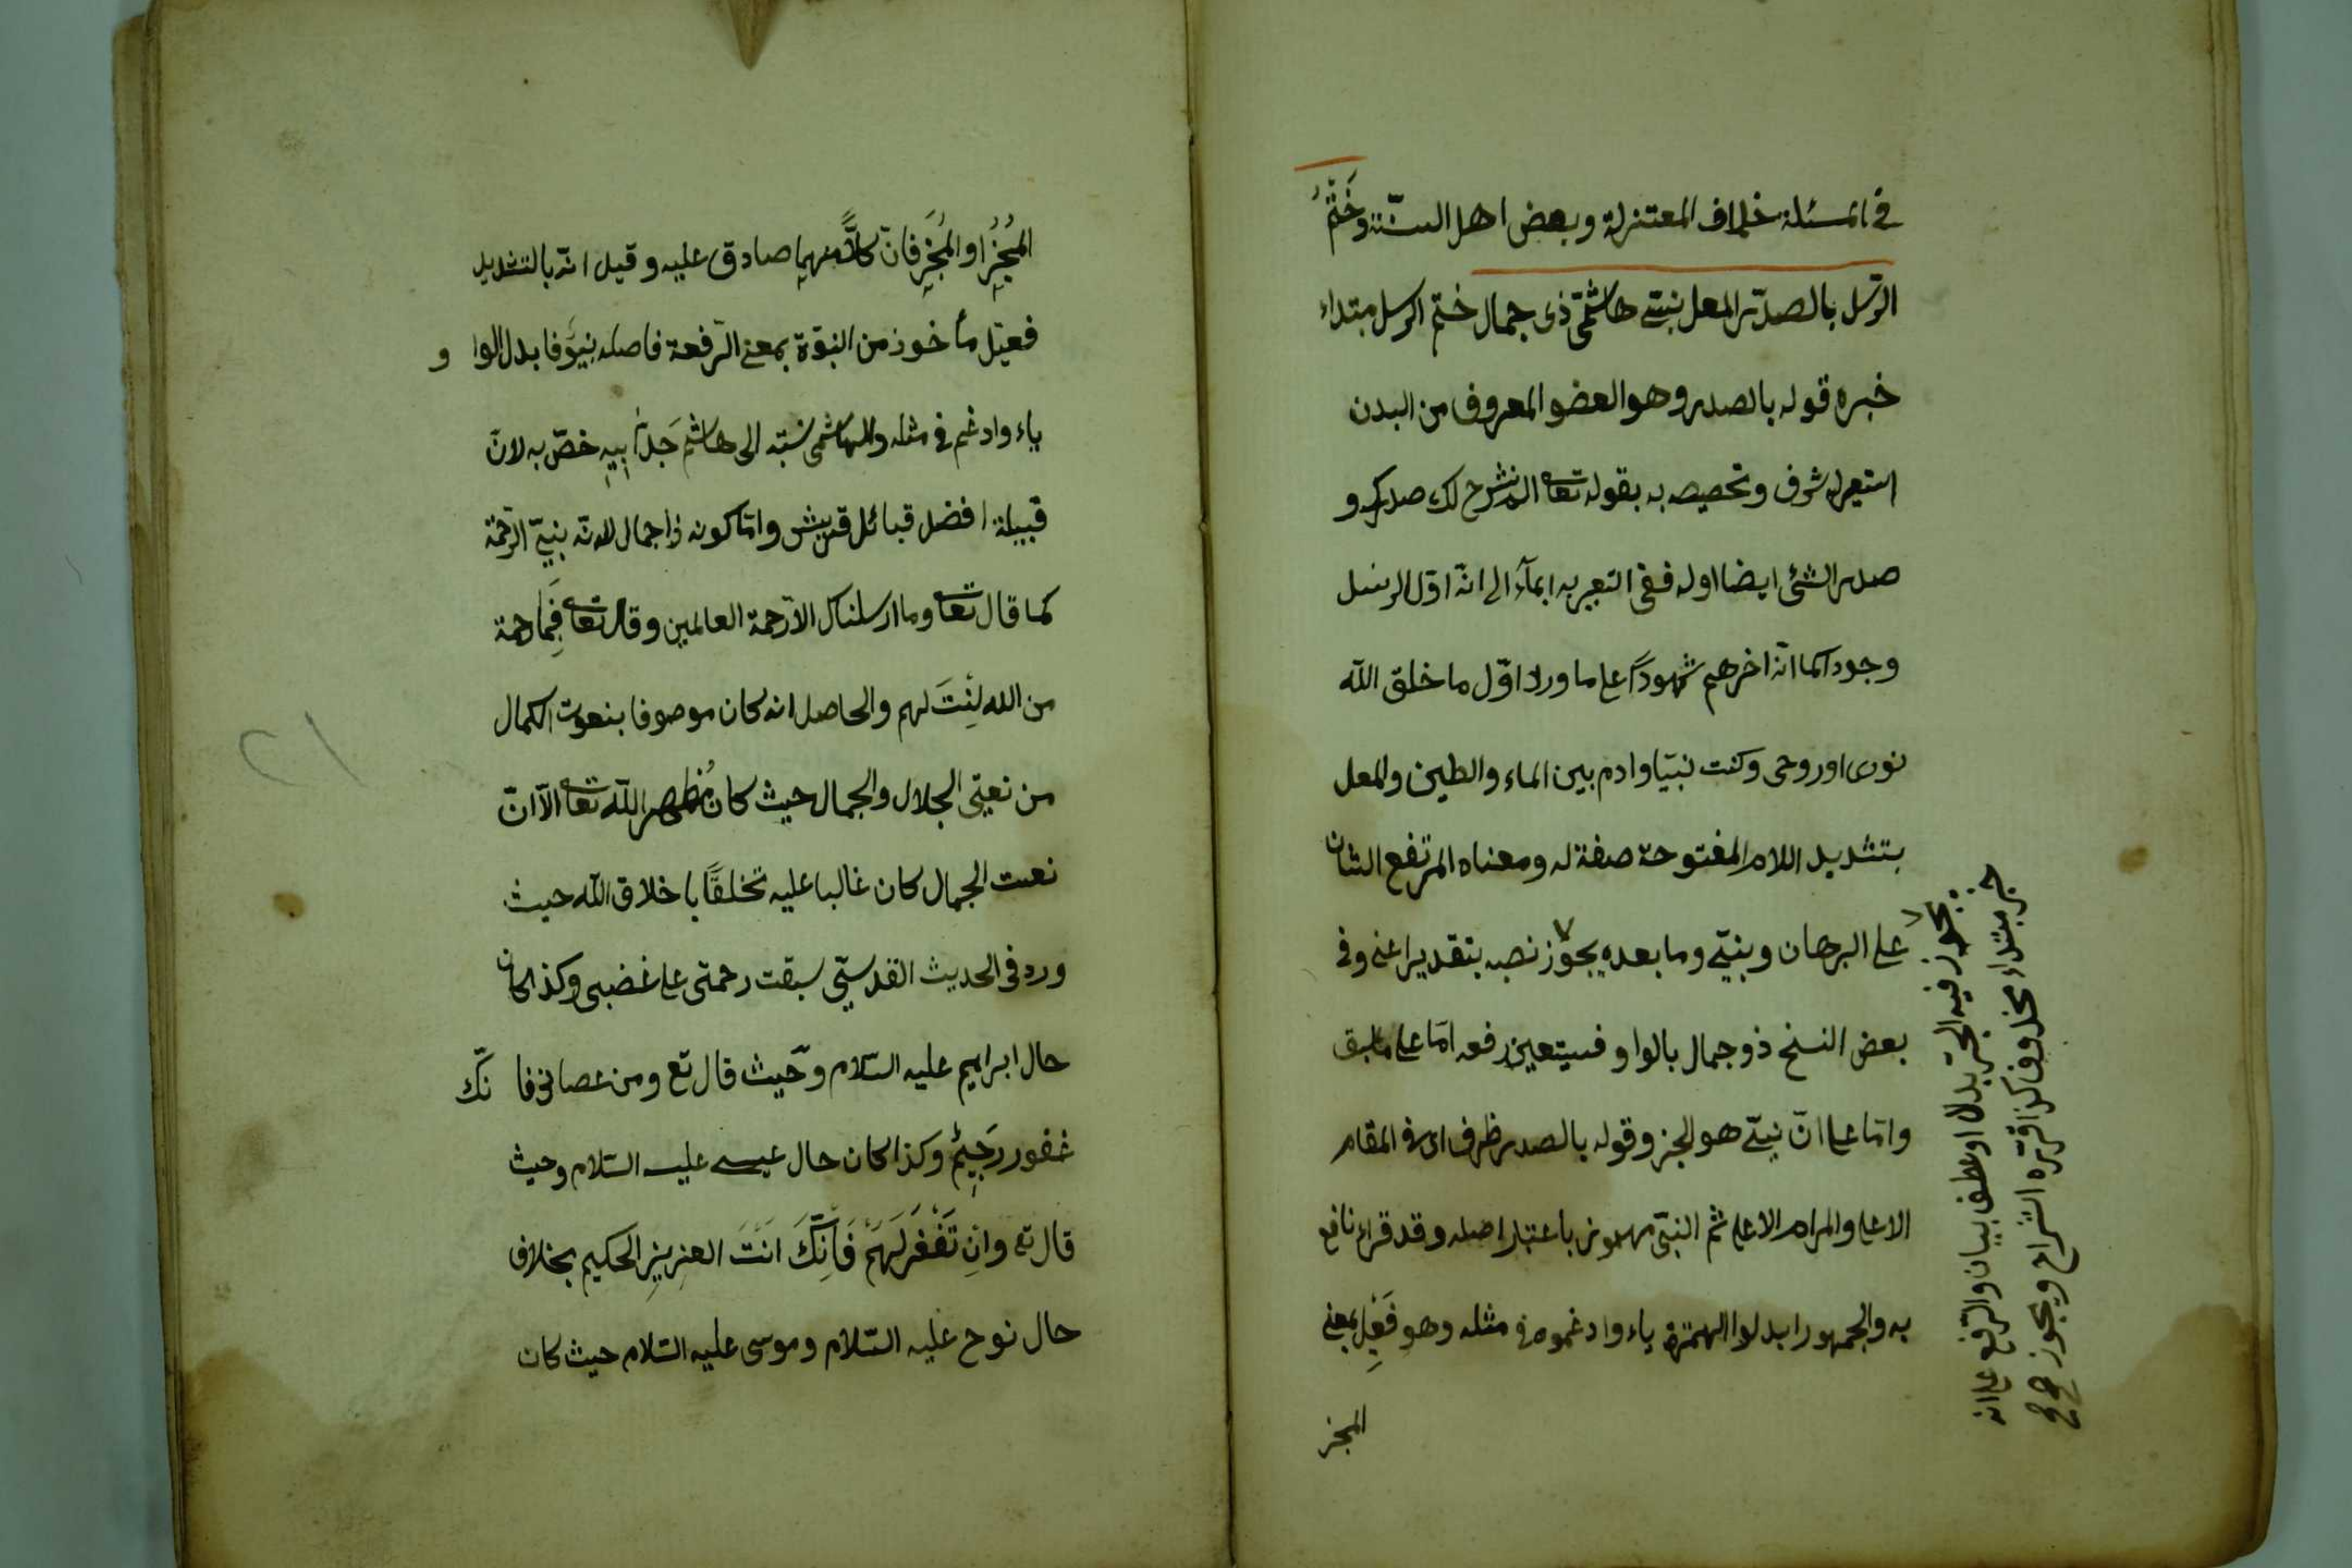 في المسئلة خلاف المعتزلة وبعض اهل السنّة وخَتْمُ
الرّسل بالصدر المعلى نبيّ هاشميّ ذي جمال ختم الرسل مبتداء
خبره قوله بالصدر وهو العضو المعروف من البدن
استعير لشرف وتخصيصه به بقوله تعا الم نشرح لك صدرك و
صدر الشئ ايضا اوله ففي التعبير به ايمآء الى انّه اوّل الرسل
وجوداً كما انّه اخرهم شهوداً على ما ورد اوّل ما خلق الله
نورى او روحى وكنت نبيّا وادم بين الماء والطين والمعلى
بتشديد اللام المفتوحة صفة له ومعناه المرتفع الشان
على البرهان ونبيّ وما بعده يجوّز نصبه بتقدير اعنى وفي
بعض النسخ ذو جمال بالواو فيتعين رفعه امّا على ما سبق
وامّا على انّ نبيّ هو الخبر وقوله بالصدر ظرف اى في المقام
الاعلى والمرام الاعلى ثم النبيّ مهموز باعتبار اصله وقد قراء نافع
به والجمهور ابدلوا الهمزة ياء وادغموه في مثله وهو فَعِيل بمعنى
المخبر
يجوز فيه الجرّ بدلا او عطف بيان والرفع على انه
خبر مبتداء محذوف كذا قرّره الشراح ويجوز صح
المُخبِر او المُخبَر فانّ كلاًّ منهما صادق عليه وقيل انّه بالتشديد
فعيل مأخوذ من النبوّة بمعنى الرّفعة فاصله نبيوٌ فابدل الواو
ياء وادغم في مثله والهاشمى نسبة الى هاشم جَدّ ابيهِ خصّ به لانّ
قبيلة افضل قبائل قريش وامّا كونه ذا جمال لانّه نبيّ الرّحمة
كما قال تعا وما ارسلناك الاّ رحمة العالمين وقال تعا فَبِمَا رحمة
من الله لِنْتَ لهم والحاصل انه كان موصوفا بنعوت الكمال
من نعتي الجلال والجمال حيث كان مُظهر الله تعا الاّ انّ
نعت الجمال كان غالبا عليه تخلقًا باخلاق الله حيث
ورد في الحديث القدسيّ سبقت رحمتى على غضبى وكذا كان
حال ابراهيم عليه السّلام وحيث قال تع ومن عصانى فانّك
غفور رَحِيْم وكذا كان حال عيسى عليه السّلام وحيث
قال تع وانِ تَغْفرْ لَهَمْ فَاِنَّكَ انَتَ العزيز الحكيم بخلاف
حال نوح عليه السّلام وموسى عليه السّلام حيث كان